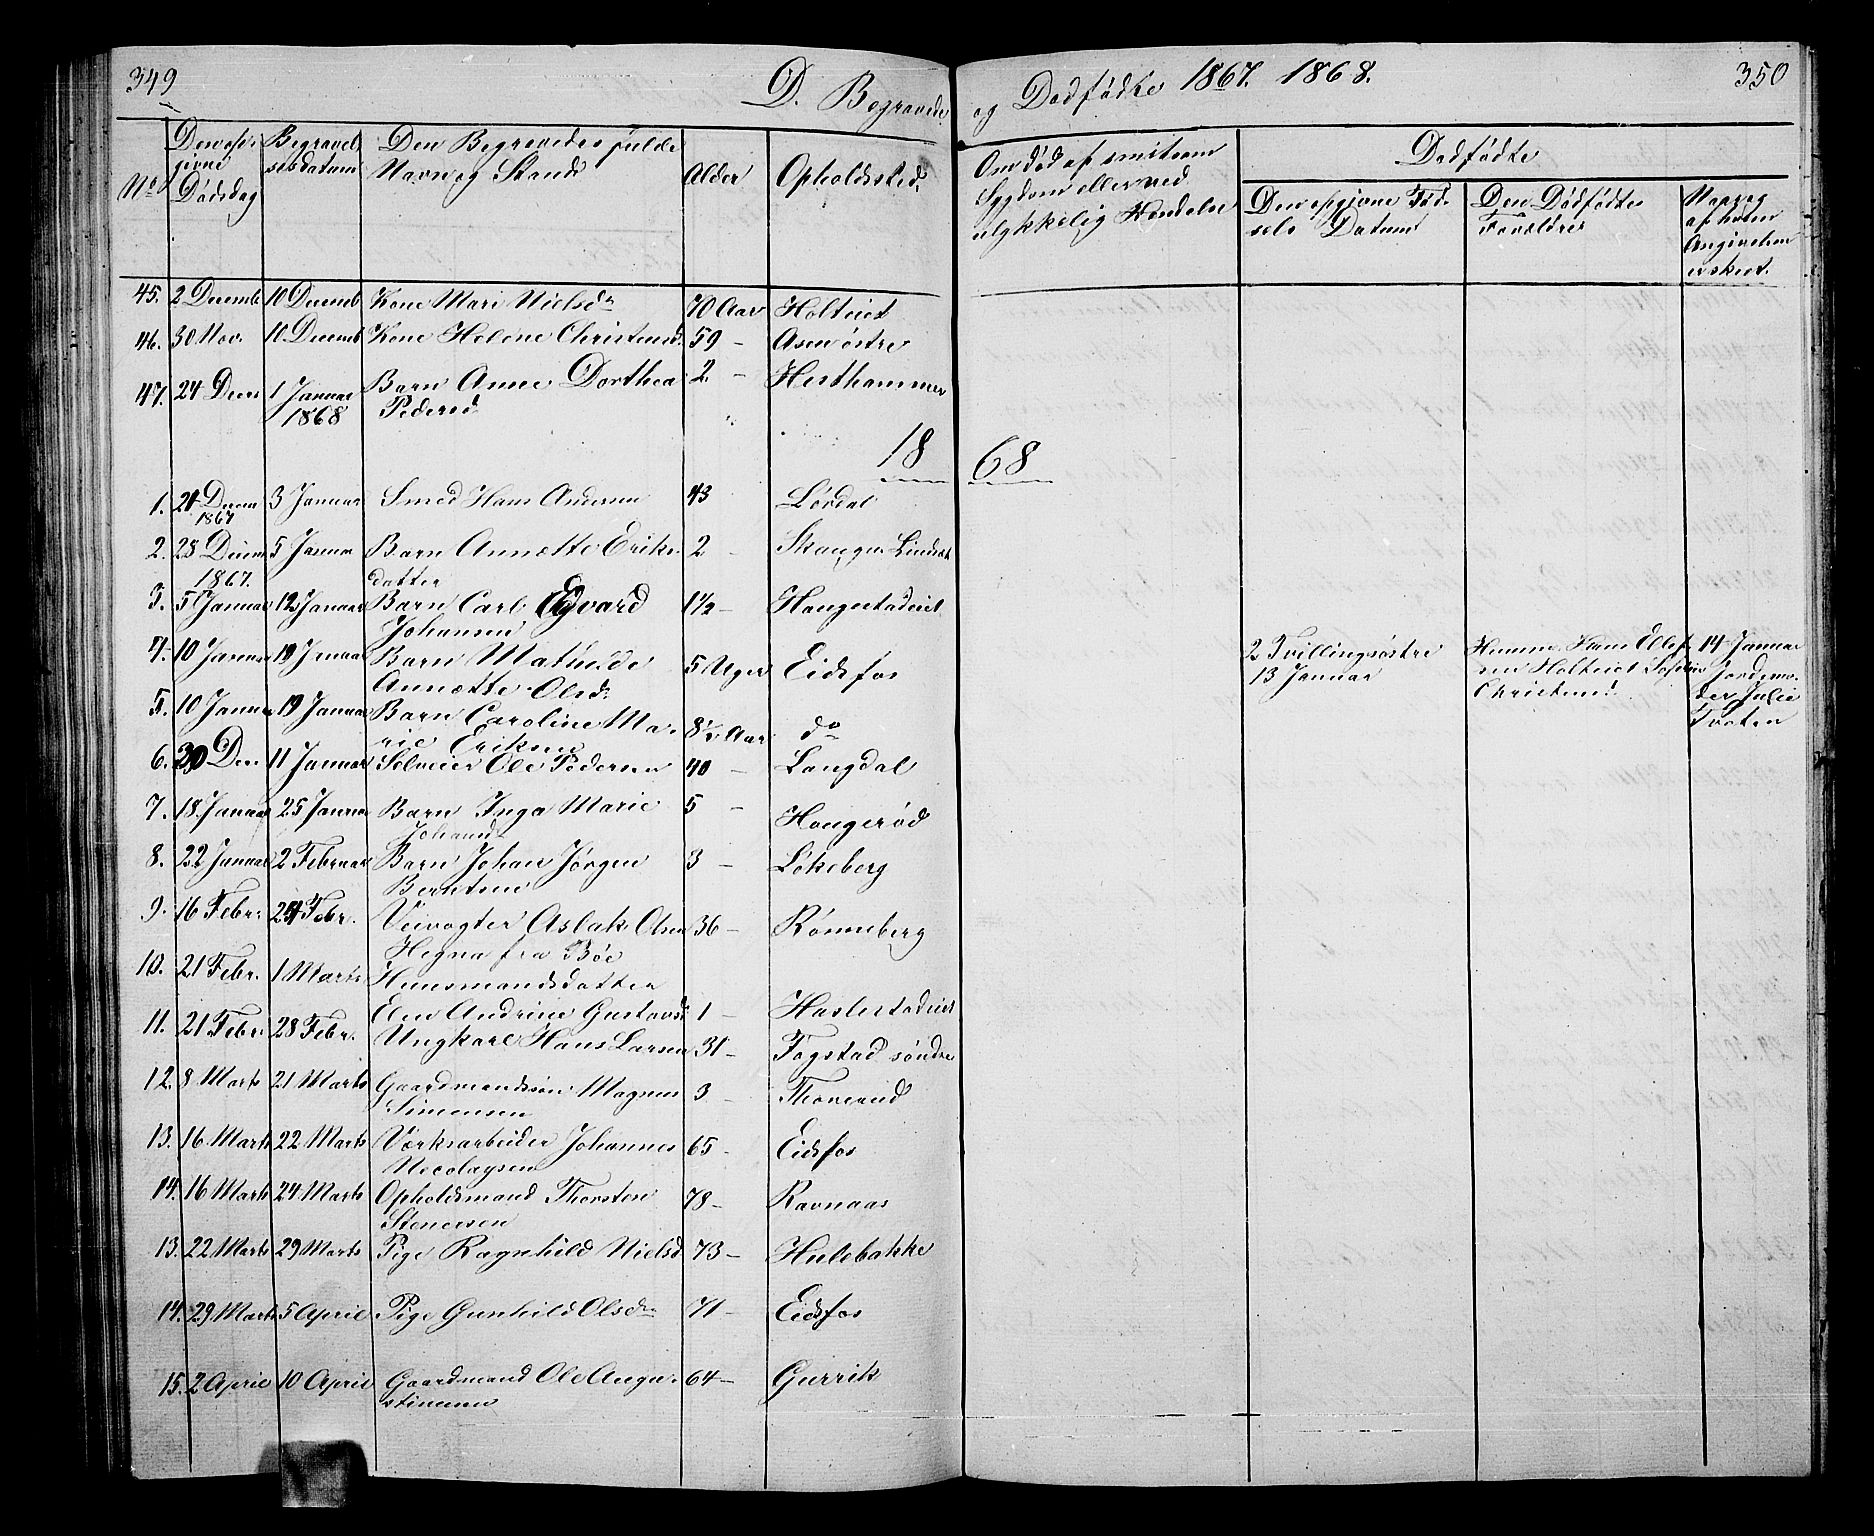 349
D. Begravede
og Dødfødte 1867. 1868.
350
No
Den opgivne Dødsdag
Begravelsesdatum
Den Begravedes fulde Navn og Stand
Alder
Opholdssted
Om død af smitsom Sygdom eller ved ulykkelig Hændelse
Dødfødte
Den opgivne Fødsels Datum
Den Dødfødtes Forældre
Naar og af hvem Angivelsen er skeet.
45. 2 Decemb 10 Decemb Kone Mari Nielsdr 70 Aar Holteiet
46. 30 Nov. 10. Decemb Kone Helene Christensd. 59 - Asen østre
47. 24 Decem 1 Januar Barn Anne Dorthea 2 - Hesthammer
1868 Pedersd
18 68
1. 21 Decem 3 Januar Smed Hans Andersen 43 Lørdal
1867
2. 28 Decem 5 Januar Barn Annette Eriks- 2 -
1867. datter
3. 5 Januar 12 Januar Barn Carl Edvard 1½ - Haugestadeiet
Johansen
4. 10 Januar 19 Januar Barn Mathilde 5 Uger Eidsfos
Annette Olsdr
2 Tvillingsøstre Hans Ellef 14 Januar
13 Januar Holteiet Jordemo-
Christensd. der Julie
Tvoten
5. 10 Januar 19 Januar Barn Caroline Ma- 8½ Aar do
rie Eriksen
6. 30 Dec 11 Januar Selveier Ole Pedersen 40 - Langdal
7. 18 Januar 25 Januar Barn Inga Marie 5 - Haugerød
Johansd
8. 22 Januar 2 Februar Barn Johan Jørgen 3 - Løkeberg
Berntsen
9. 16 Febr. 24 Febr. Veivogter Aslak Olsen 36 - Rønneberg
Hegna fra Bøe
10. 21 Febr. 1 Marts Huusmandsdatter
Elen Andrine Gustavsd 1 - Haslestadeiet
11. 21 Febr. 28 Febr. Ungkarl Hans Larsen 31 - Fogstad søndre
12. 8 Marts 21 Marts Gaardmandssøn Magnus 3 - Thorerud
Simensen
13. 16 Marts 22 Marts Værksarbeider Johannes 65 - Eidsfos
Necolaysen
14. 16 Marts 24 Marts Opholdsmand Thorsten 78 - Ravnaas
Stenersen
13. 22 Marts 29 Marts Pige Ragnhild Nielsd 73 - Hulebakke
14. 29 Marts 5 April Pige Gunhild Olsdr 71 - Eidsfos
15. 2 April 10 April Gaardmand Ole Augu- 64 - Gurrik
stinusen